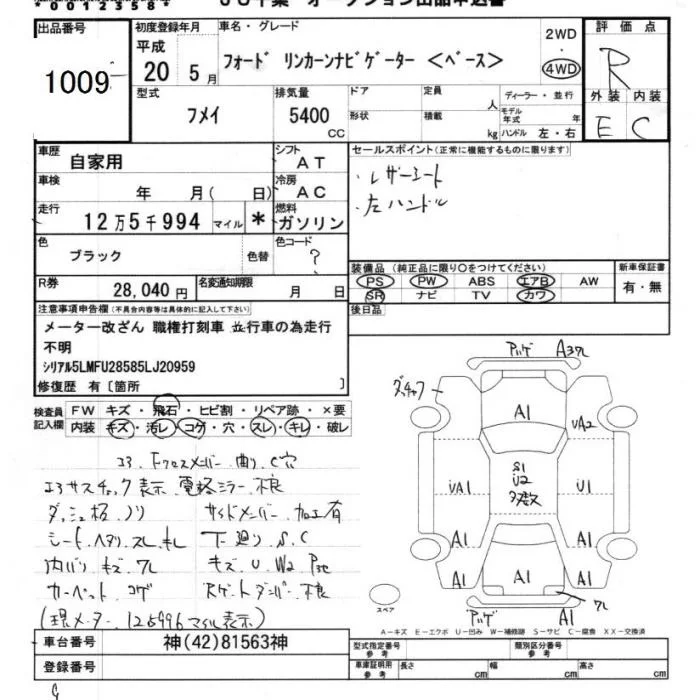 00123584 JU千葉 オークション出品申込書
出品番号 1009
初度登録年月 平成 20 5月
車名・グレード フォード リンカーンナビゲーター <ベース>
2WD・4WD
評価点 R
外装 内装
E C
型式 フメイ
排気量 5400 CC
ドア 形状
定員 人 積載 kg
ディーラー・並行
モデル年式 年
ハンドル 左・右
車歴 自家用
シフト AT
車検 年 月(日)
冷房 AC
走行 12万5千994 マイル *
燃料 ガソリン
色 ブラック 色替
色コード ?
R券 28,040円
名変通知期限 月 日
セールスポイント(正常に機能するものに限ります)
・レザーシート
・左ハンドル
装備品(純正品に限り○をつけてください)
PS PW ABS エアB AW
SR ナビ TV カワ
新車保証書 有・無
後日品
注意事項申告欄(不具合内容等は具体的に記入して下さい)
メーター改ざん 職権打刻車 並行車の為走行
不明
シリアル5LMFU28585LJ20959
修復歴 有[箇所 ]
検査員記入欄
FW キズ・飛石・ヒビ割・リペア跡・×要
内装 キズ・汚レ・コゲ・穴・スレ・キレ・破レ
コゴ.Fクロスメンバー 曲り.C穴
エアサスチェック表示.電格ミラー.不良
ダッシュ板.ノリ サイドメンバー.加工有
シート.ヘタリ.スレ.キレ 下廻り.S.C
内バリ キズ.ワレ キズ.U.W2
カーペット.コゲ Rゲートダンパー.不良
(現メーター.125996マイル表示)
A3ワレ
A1
UA2
UA1
S1
U2
多数
U1
A1 A1
A1 A1 A1
ワレ
A1
スペア
A-キズ E-エクボ U-凹み W-補修跡 S-サビ C-腐食 XX-交換済
車台番号 神(42)81563神
登録番号
型式指定番号 参考
類別区分番号 参考
車庫証明用 参考 長さ cm 幅 cm 高さ cm